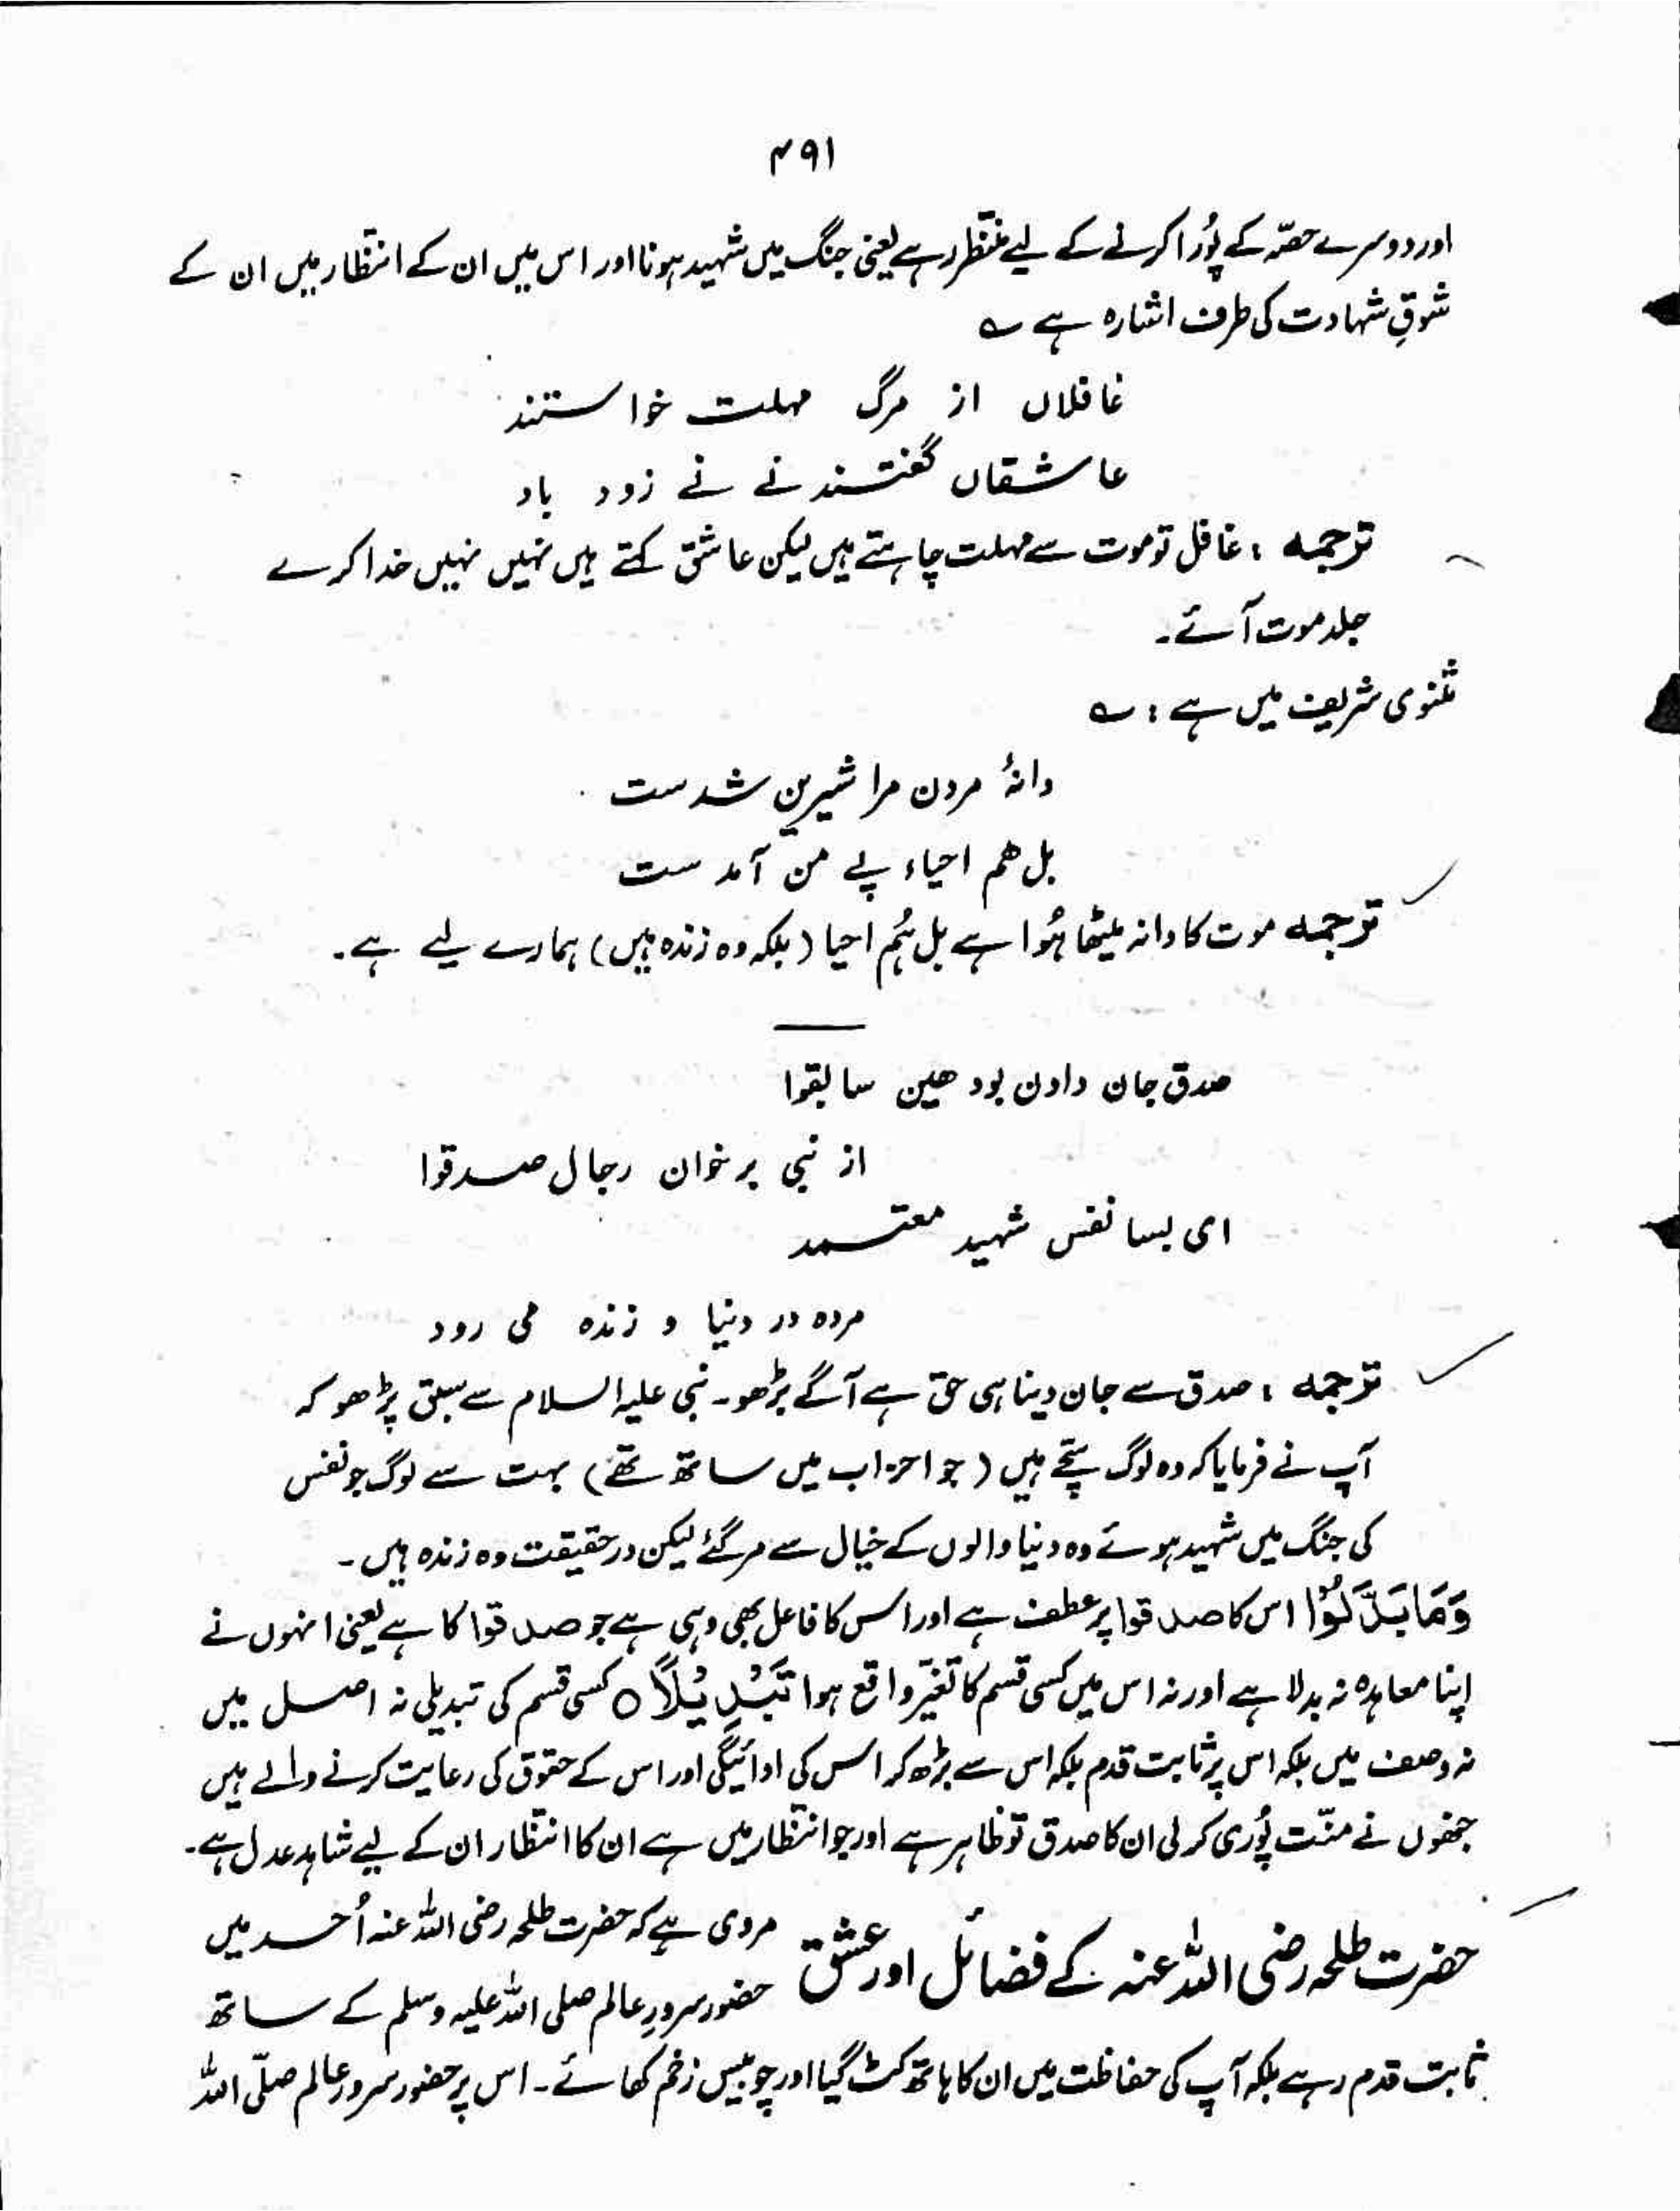 ۴۹۱
اور دوسرے حصّہ کے پُورا کرنے کے لیے منتظر رہے یعنی جنگ میں شہید ہونا اور اس میں ان کے انتظار میں ان کے
شوقِ شہادت کی طرف اشارہ ہے ؎
غافلاں از مرگ مہلت خواستند
عاشقاں گفتند نے نے زود باد
ترجمہ : غافل تو موت سے مہلت چاہتے ہیں لیکن عاشق کہتے ہیں نہیں نہیں خدا کرے
جلد موت آئے۔
مثنوی شریف میں ہے : ؎
دانۂ مردن مرا شیرین شدست
بل ھم احیاء پے من آمدست
ترجمہ موت کا دانہ میٹھا ہُوا ہے بل ہُم احیا (بلکہ وہ زندہ ہیں) ہمارے لیے ہے۔
صدق جان دادن بود ھین سابقوا
از نبی برخوان رجال صدقوا
ای بسا نفس شہید معتمد
مردہ در دنیا و زندہ می رود
ترجمہ : صدق سے جان دینا ہی حق ہے آگے بڑھو۔ نبی علیہ السلام سے سبق پڑھو کہ
آپ نے فرمایا کہ وہ لوگ سچّے ہیں (جو احزاب میں ساتھ تھے) بہت سے لوگ جو نفس
کی جنگ میں شہید ہوئے وہ دنیا والوں کے خیال سے مرگئے لیکن درحقیقت وہ زندہ ہیں۔
وَمَا بَدَّلُوْا اس کا صدقوا پر عطف ہے اور اس کا فاعل بھی وہی ہے جو صدقوا کا ہے یعنی انہوں نے
اپنا معاہدہ نہ بدلا ہے اور نہ اس میں کسی قسم کا تغیّر واقع ہوا تَبْدِیْلًا ○ کسی قسم کی تبدیلی نہ اصل میں
نہ وصف میں بلکہ اس پر ثابت قدم بلکہ اس سے بڑھ کر اس کی ادائیگی اور اس کے حقوق کی رعایت کرنے والے ہیں
جنھوں نے منّت پُوری کر لی ان کا صدق تو ظاہر ہے اور جو انتظار میں ہے ان کا انتظار ان کے لیے شاہد عدل ہے۔
حضرت طلحہ رضی اللہ عنہ کے فضائل اور عشق
مروی ہے کہ حضرت طلحہ رضی اللہ عنہ اُحد میں
حضور سرورِ عالم صلی اللہ علیہ وسلم کے ساتھ
ثابت قدم رہے بلکہ آپ کی حفاظت میں ان کا ہاتھ کٹ گیا اور چوبیس زخم کھائے۔ اس پر حضور سرورِ عالم صلّی اللہ